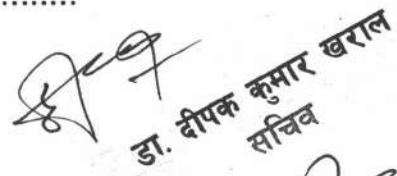 .........
डा. दीपक कुमार खराल
सचिव